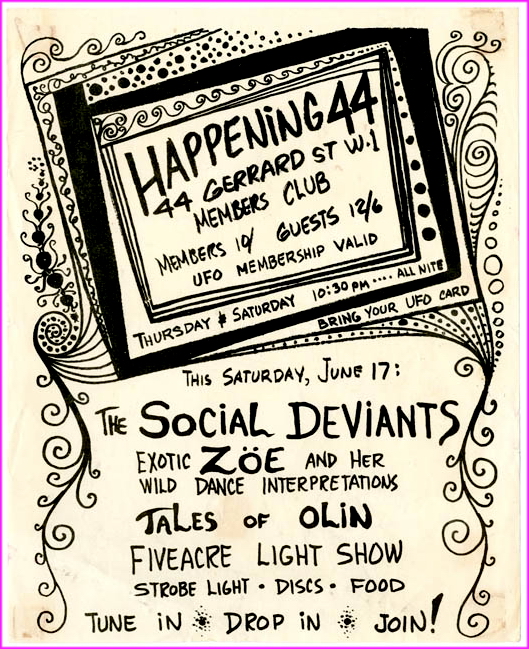 HAPPENING 44
44 GERRARD ST W.1
MEMBERS CLUB
MEMBERS 10/ GUESTS 12/6
UFO MEMBERSHIP VALID
THURSDAY & SATURDAY 10:30 PM .... ALL NITE
BRING YOUR UFO CARD
THIS SATURDAY, JUNE 17:
THE SOCIAL DEVIANTS
EXOTIC ZÖE AND HER
WILD DANCE INTERPRETATIONS
TALES OF OLIN
FIVEACRE LIGHT SHOW
STROBE LIGHT · DISCS · FOOD
TUNE IN DROP IN JOIN!